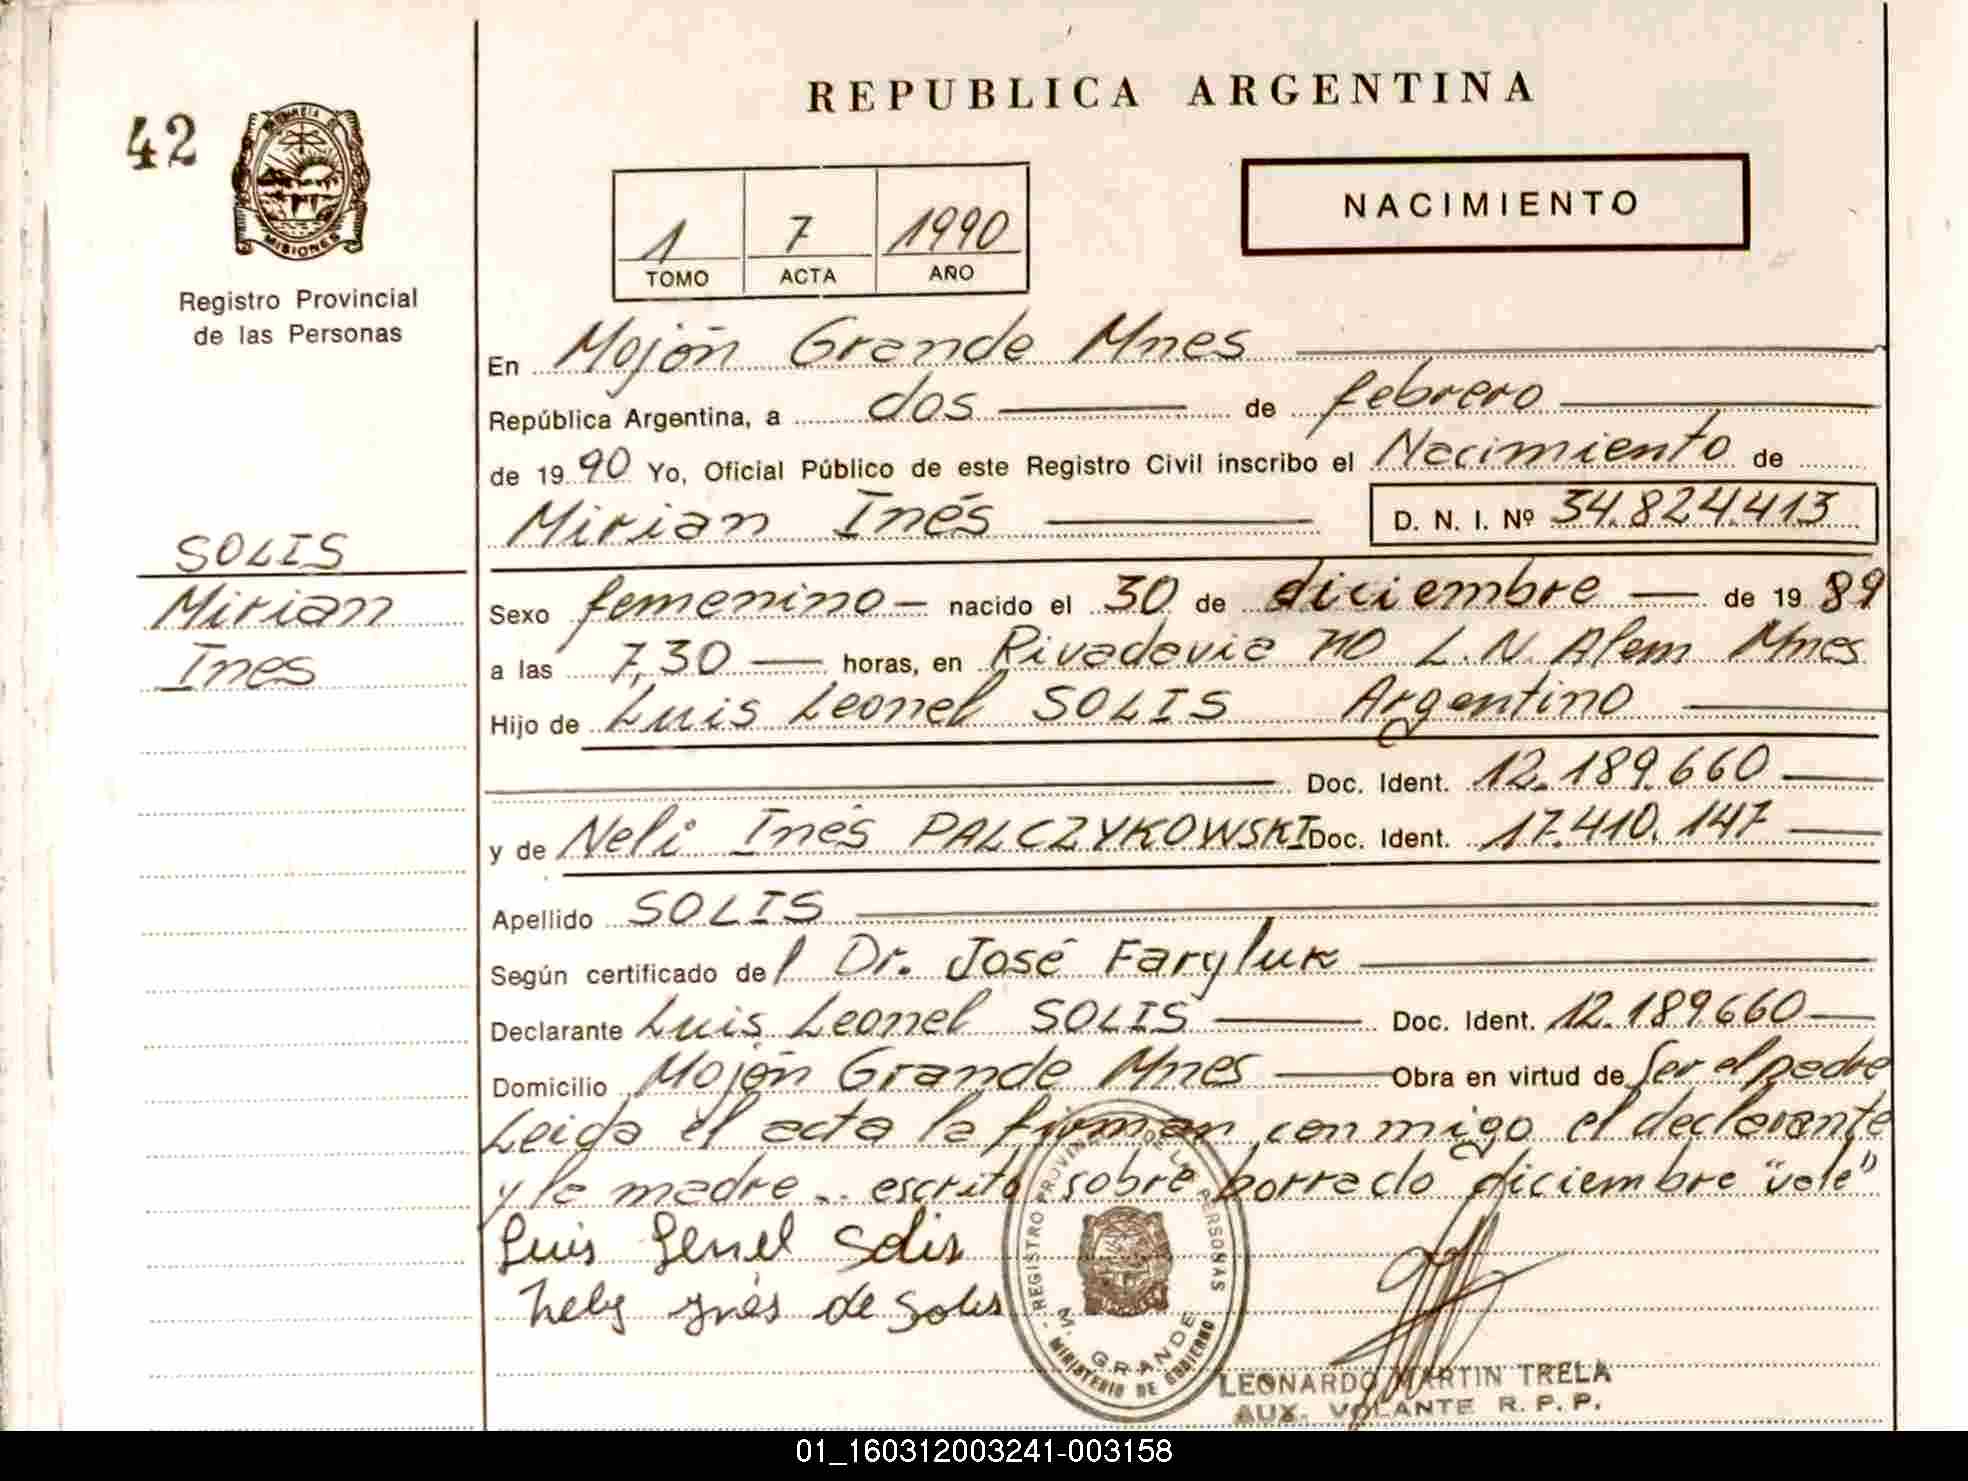 REPUBLICA ARGENTINA
42
PROVINCIA DE
MISIONES
Registro Provincial
de las Personas
1 7 1990
TOMO ACTA AÑO
NACIMIENTO
En Mojón Grande Mnes
República Argentina, a dos de febrero
de 1990 Yo, Oficial Público de este Registro Civil inscribo el Nacimiento de
Mirian Inés D. N. I. Nº 34.824.413
SOLIS
Mirian
Ines
Sexo femenino nacido el 30 de diciembre de 1989
a las 7,30 horas, en Rivadavia 710 L.N. Alem Mnes
Hijo de Luis Leonel SOLIS Argentino
Doc. Ident. 12.189.660
y de Neli Inés PALCZYKOWSKI Doc. Ident. 17.410.147
Apellido SOLIS
Según certificado del Dr. José Faryluk
Declarante Luis Leonel SOLIS Doc. Ident. 12.189660
Domicilio Mojón Grande Mnes Obra en virtud de Ser el padre
Leida el acta la firman conmigo el declarante
y la madre.. escrito sobre borrado diciembre "vale"
Luis Lenel Solis
Nely Ynés de Solis
REGISTRO PROVINCIAL DE LAS PERSONAS
M. GRANDE
MINISTERIO DE GOBIERNO
LEONARDO MARTIN TRELA
AUX. VOLANTE R. P. P.
01_160312003241-003158